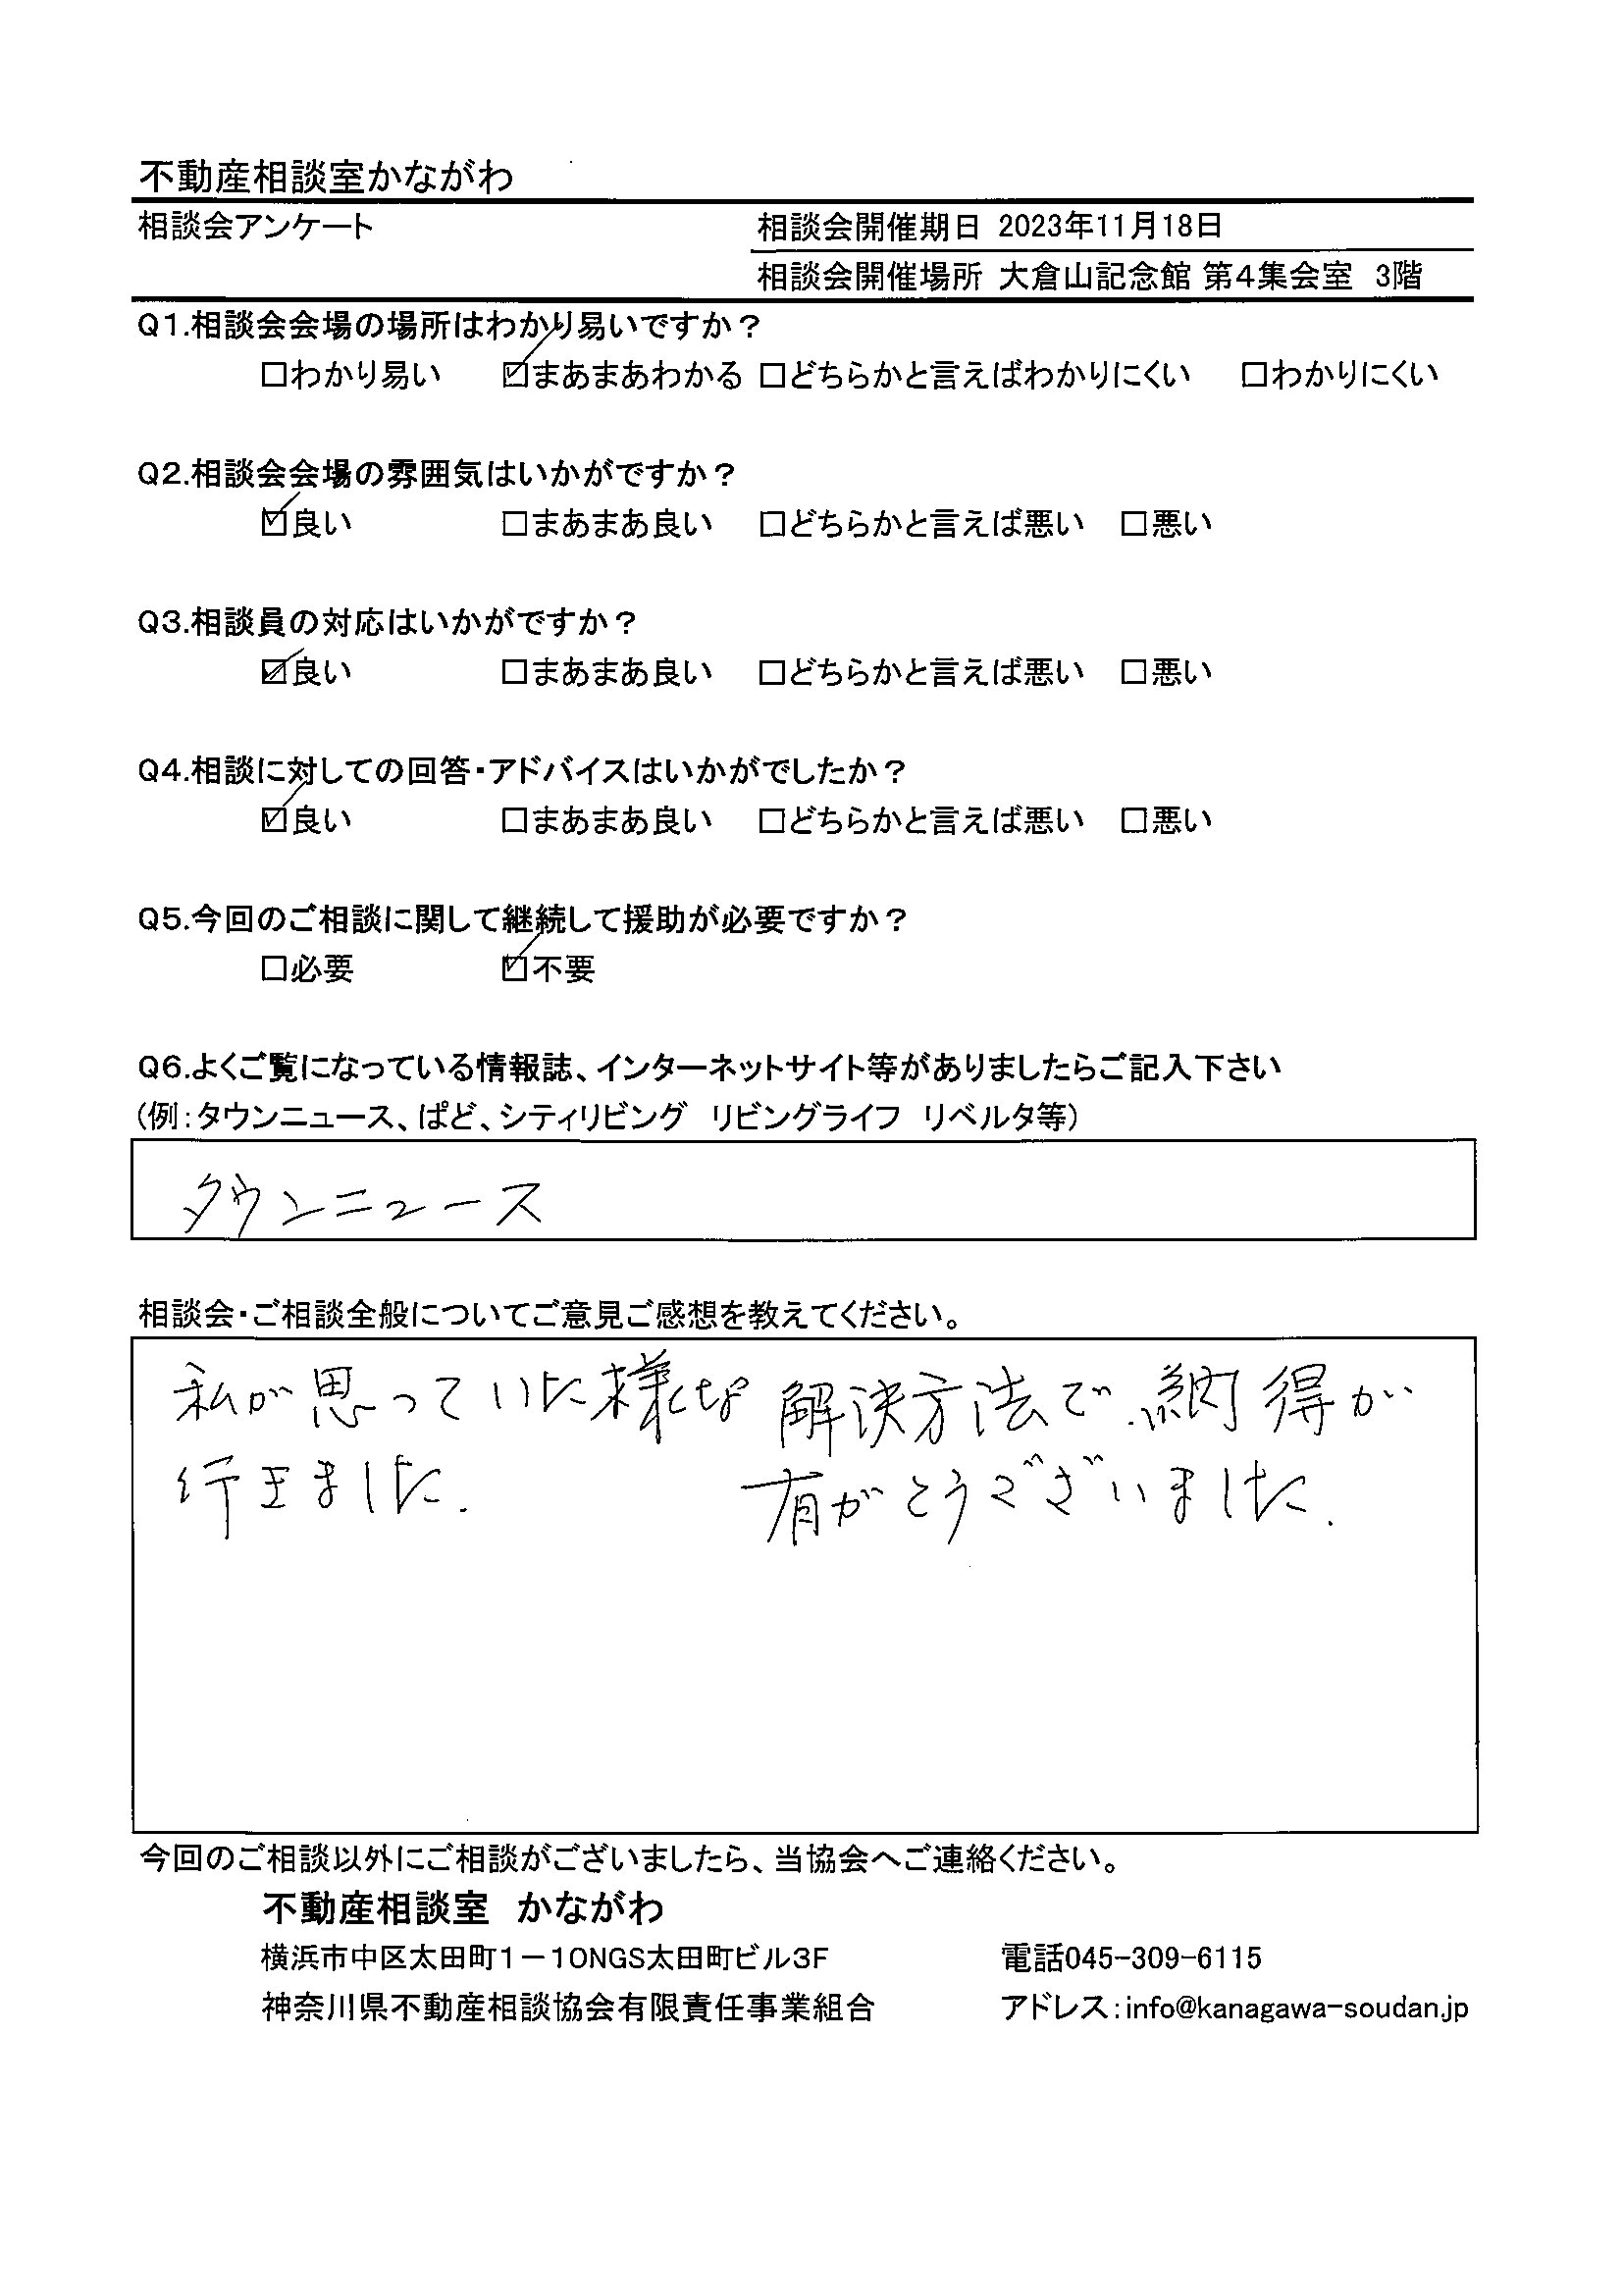 不動産相談室かながわ
相談会アンケート
相談会開催期日 2023年11月18日
相談会開催場所 大倉山記念館 第4集会室 3階
Q1.相談会会場の場所はわかり易いですか？
□わかり易い ☑まあまあわかる □どちらかと言えばわかりにくい □わかりにくい
Q2.相談会会場の雰囲気はいかがですか？
☑良い □まあまあ良い □どちらかと言えば悪い □悪い
Q3.相談員の対応はいかがですか？
☑良い □まあまあ良い □どちらかと言えば悪い □悪い
Q4.相談に対しての回答・アドバイスはいかがでしたか？
☑良い □まあまあ良い □どちらかと言えば悪い □悪い
Q5.今回のご相談に関して継続して援助が必要ですか？
□必要 ☑不要
Q6.よくご覧になっている情報誌、インターネットサイト等がありましたらご記入下さい
(例：タウンニュース、ぱど、シティリビング リビングライフ リベルタ等)
タウンニュース
相談会・ご相談全般についてご意見ご感想を教えてください。
私が思っていた様な解決方法で納得が
行きました. 有がとうございました.
今回のご相談以外にご相談がございましたら、当協会へご連絡ください。
不動産相談室 かながわ
横浜市中区太田町1－10NGS太田町ビル3F 電話045-309-6115
神奈川県不動産相談協会有限責任事業組合 アドレス：info@kanagawa-soudan.jp